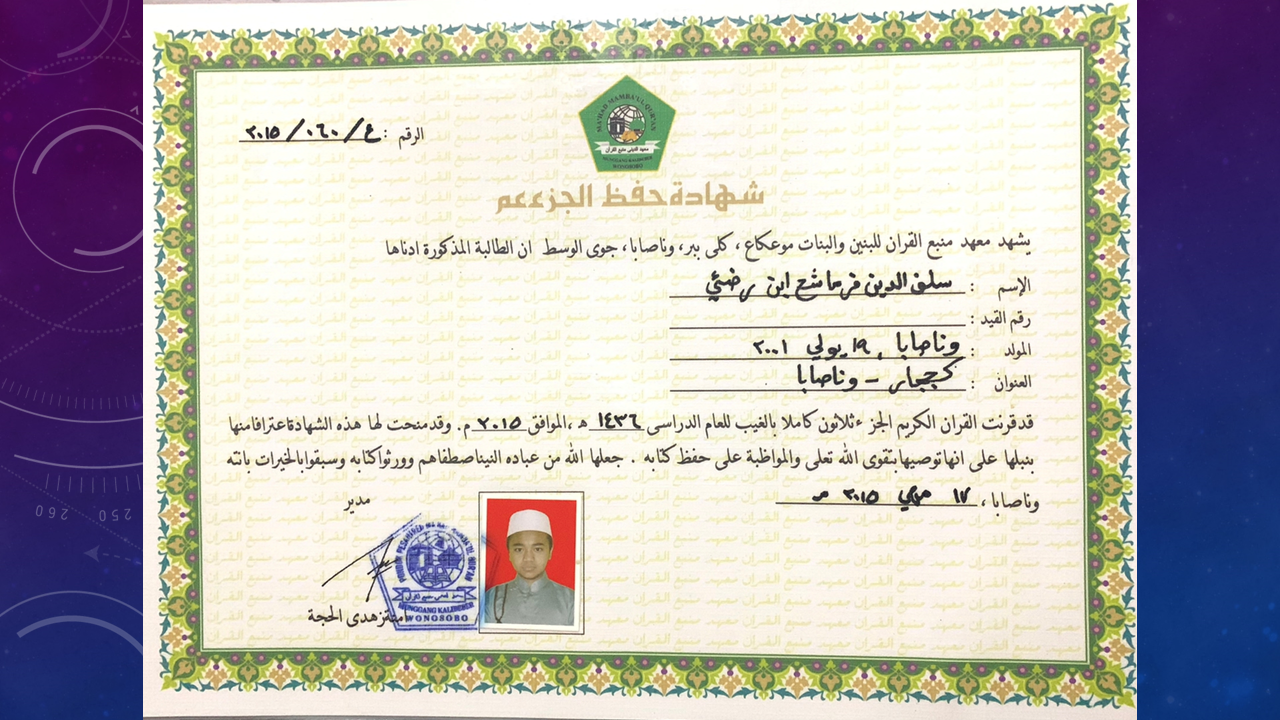 MA'HAD MAMBA'UL QUR'AN
معهد الديني منبع القران
MUNGGANG KALIBEBER
WONOSOBO
الرقم : ع / ٠٦٠ / ٢٠١٥
شهادة حفظ الجزء عم
يشهد معهد منبع القران للبنين والبنات موعكاع ، كلى ببر، وناصابا ، جوى الوسط ان الطالبة المذكورة ادناها
الإسم : سلف الدين فرماشح ابن رضئي
رقم القيد :
المولد : وناصابا , ١٩ يولي ٢٠٠١
العنوان : كججار - وناصابا
قدقرنت القران الكريم الجز ء ثلاثون كاملا بالغيب للعام الدراسى ١٤٣٦ ه ،الموافق ٢٠١٥ م. وقدمنحت لها هذه الشهادةاعترافامنها
بنبلها على انهاتوصيهابتقوى الله تعلى والمواظبة على حفظ كتابه . جعلها الله من عباده النيناصطفاهم وورثواكتابه وسبقوابالخبرات باتته
وناصابا ، ١٧ مي ٢٠١٥ م
مدير
MUNGGANG KALIBEBER
WONOSOBO
زهدى الحجة
260
250